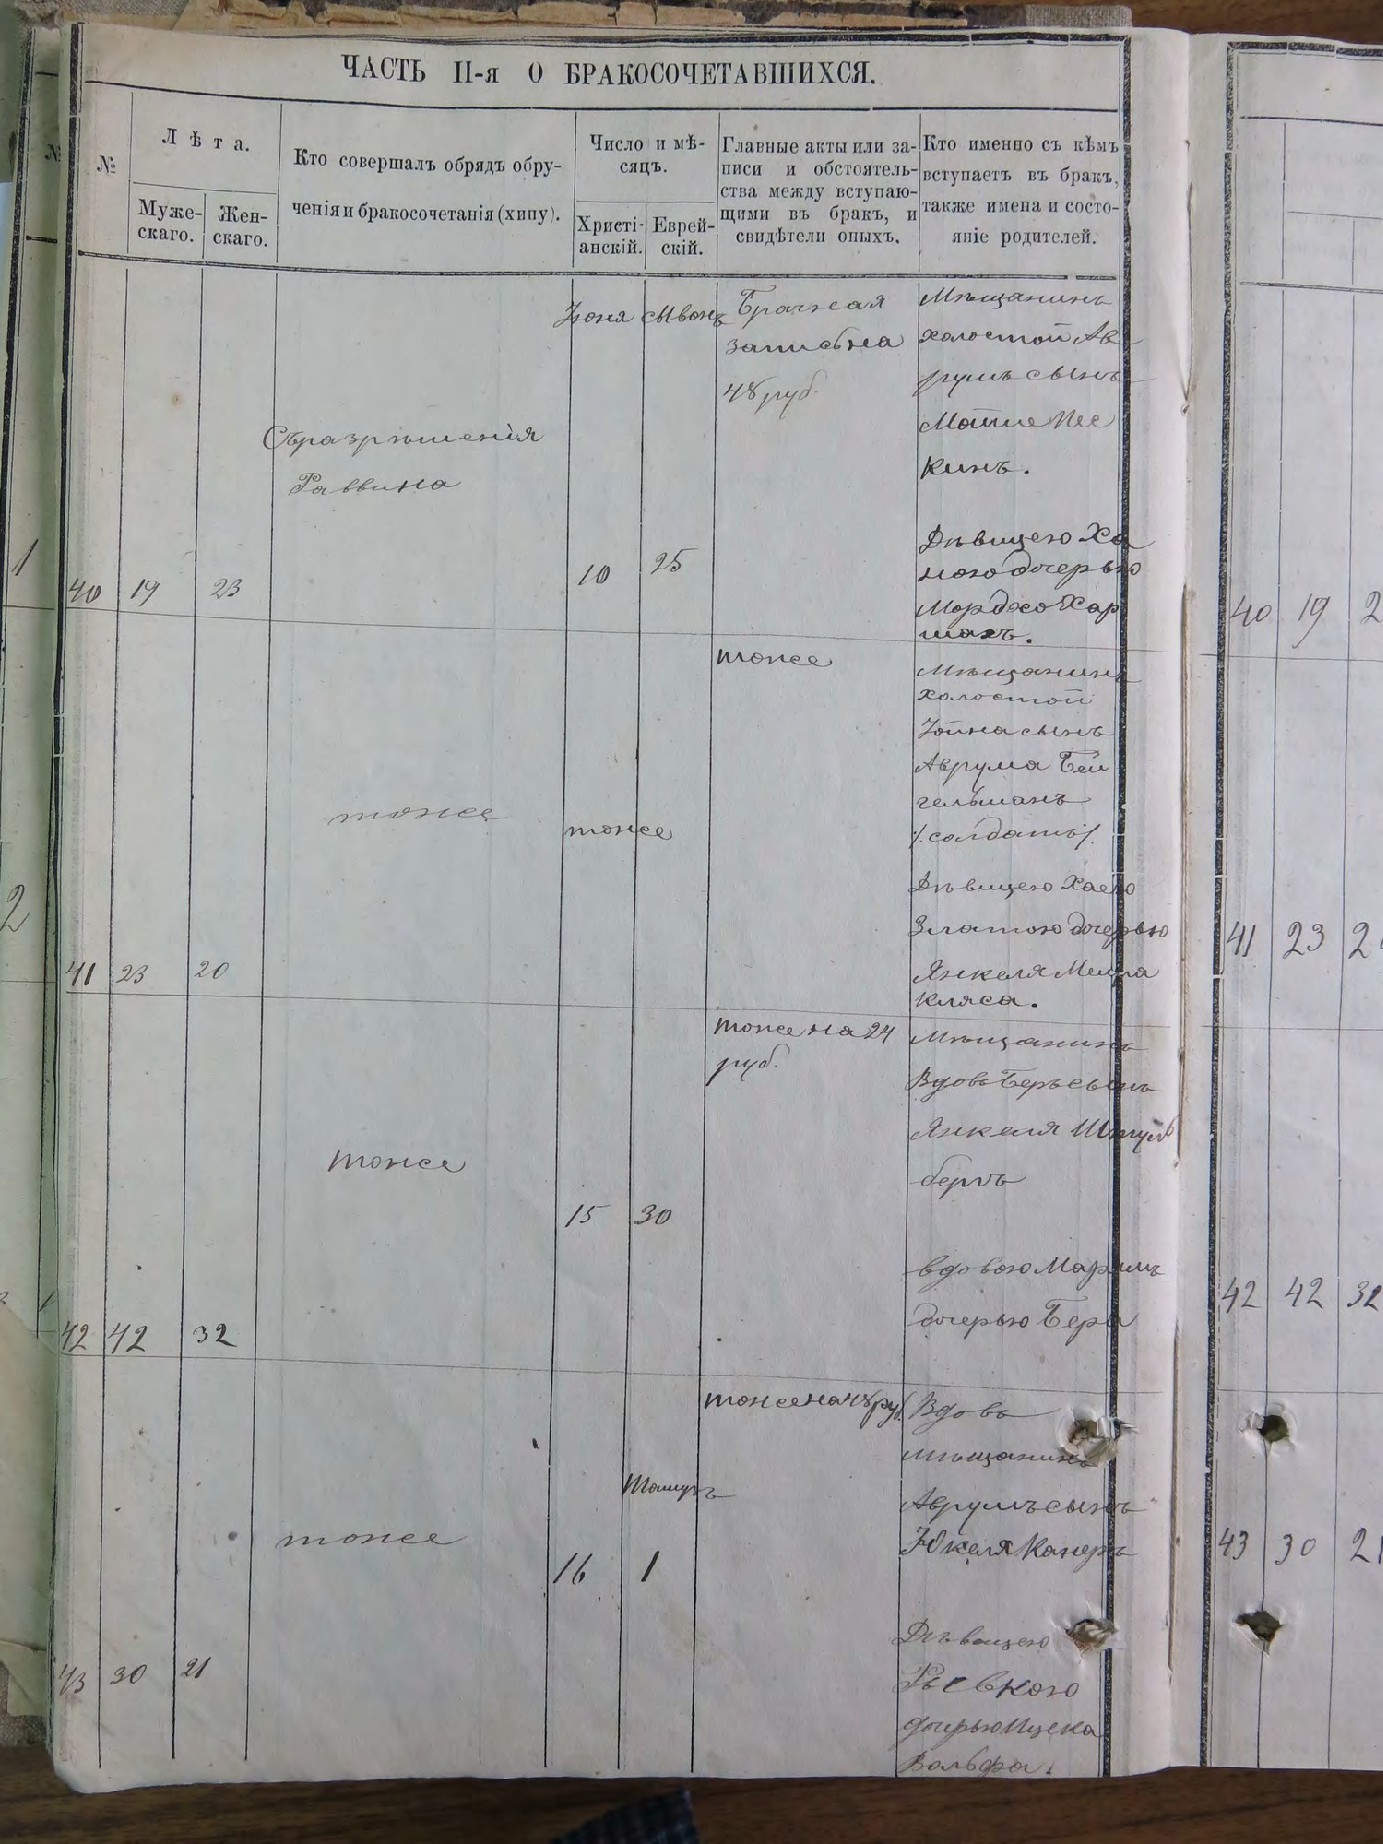 ЧАСТЬ II-я О БРАКОСОЧЕТАВШИХСЯ.
№
Лѣта.
Муже-
скаго.
Жен-
скаго.
Кто совершалъ обрядъ обру-
ченія и бракосочетанія (хипу).
Число и мѣ-
сяцъ.
Христі-
анскій.
Еврей-
скій.
Главные акты или за-
писи и обстоятель-
ства между вступаю-
щими въ бракъ, и
свидѣтели оныхъ.
Кто именно съ кѣмъ
вступаетъ въ бракъ,
также имена и состо-
яніе родителей.
40
19
23
Съ разрѣшенія
Раввина
Іюня
10
сывонъ
25
Брачная
запись на
48 руб.
Мѣщанинъ
холостой Ав
румъ сынъ
кинъ.
Дѣвицею Ха
ною дочерью
41
23
20
тоже
тоже
тоже
Мѣщанинъ
холостой
Іойна сынъ
Аврума Бей
гельманъ
/:солдатъ:/
Дѣвицею Хаею
Златою дочерью
Янкеля
42
42
32
тоже
15
30
тоже на 24
руб.
Мѣщанинъ
Вдовъ Беръ сынъ
Янкеля
бергъ
вдовою
дочерью Бера
43
30
21
тоже
16
Тамузъ
1
тоже на 48 руб.
Вдовъ
мѣщанинъ
Аврумъ сынъ
Дѣвицею
Ривкою
дочерью Ицека
Вольфа.
1
2
40 19 2
41 23 2
42 42 32
43 30 21